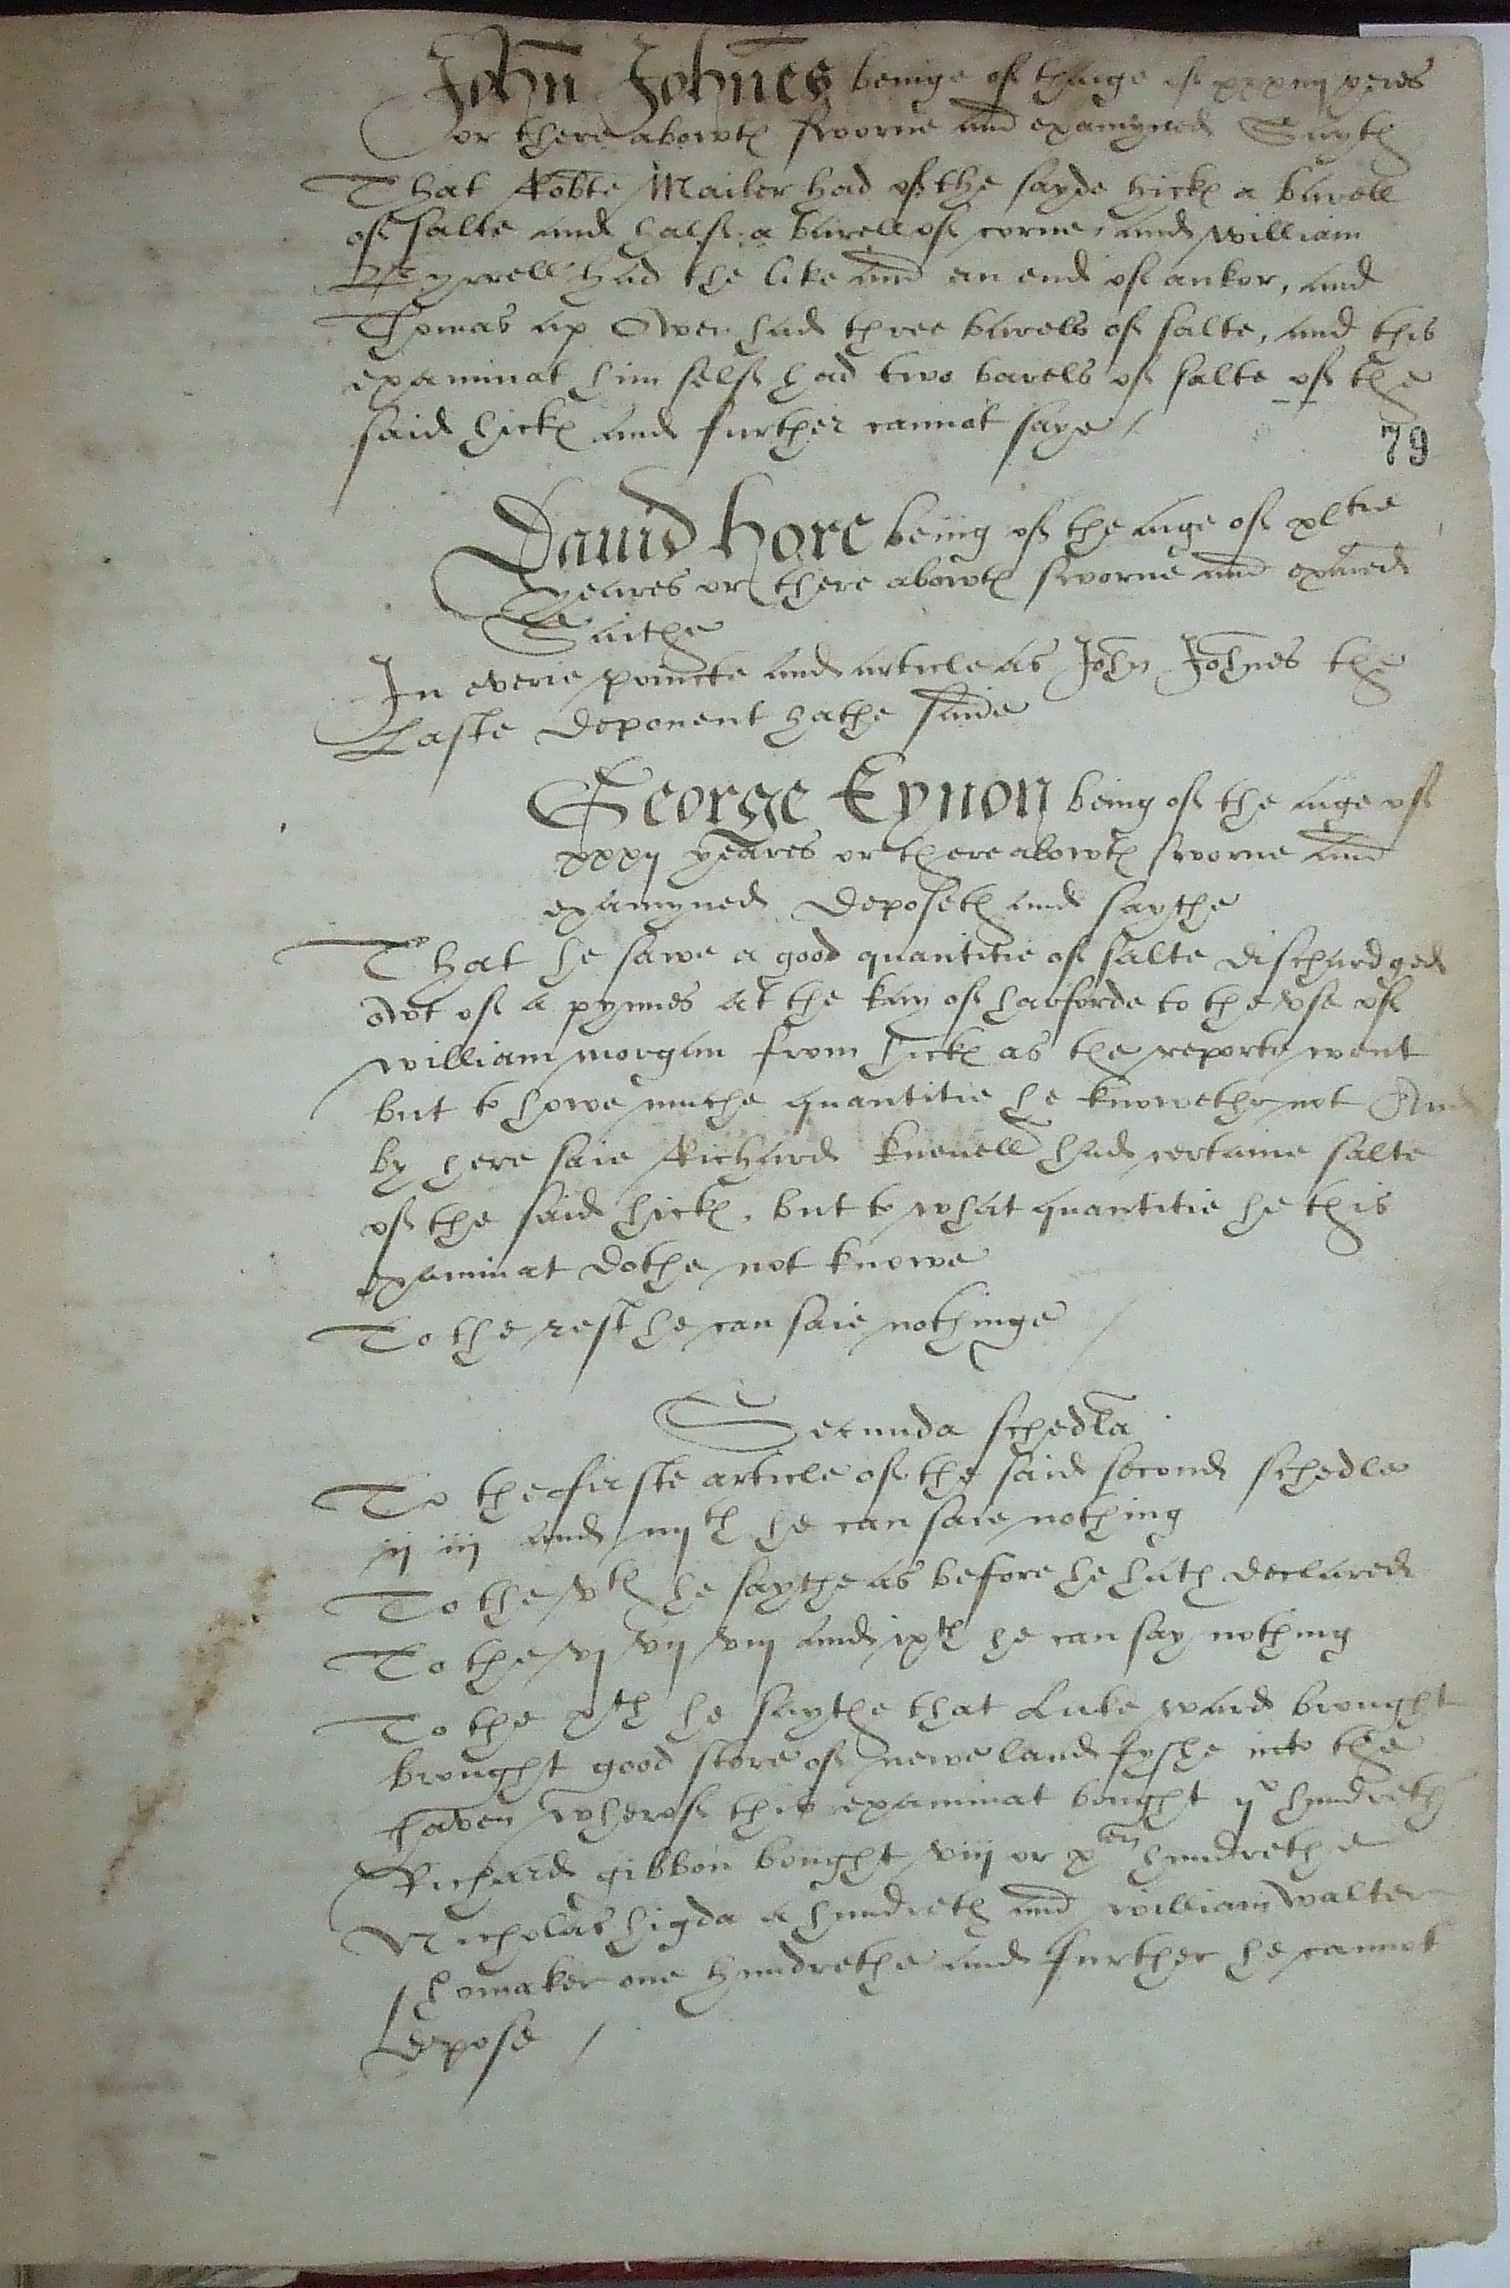 John Johnes beinge of thage of xxxiiij yeres
or there abowt sworne and examyned Sayth
That Robte Mailer had of the sayde hick a barell
of salte and halfe a barell of corne, and william
Tyrrell had the like and an end of ankor, and
Thomas ap Owen had three barels of salte, and this
examinat him selfe had two barels of salte of the
said hick and further cannot saye /
79
David hore beiing of the aige of xltie
yeares or there abowt sworne and examed
Saithe
In everie poincte and article as John Johnes the
Laste deponent hathe saide
George Eynon being of the aige of
xxxij yeares or there abowt sworne and
examyned deposeth and saythe
That he sawe a good quantitie of salte dischardged
owt of a pynnes at the kay of harforde to the use of
william morgan from hick as the reporte went
but to howe muche quantitie he knowethe not And
by here saie Richard knevell had certaine salte
of the said hick, but to what quantitie he this
examinat dothe not knowe
To the rest he can saie nothinge /
Secunda schedla
To the firste article of the said second schedle
ij iij and iiijth he can saie nothing
To the vth he saythe as before he hath declared
To the vj vij viij and ixth he can say nothing
To the xth he saythe that Luke ward brought
brought good store of newe land fyshe into the
haven wherof this examinat bought ijo hundreth
Richard gibbon bought viij or xen hundrethe
Nicholas higda a hundreth and william walter
shomaker one hundrethe and further he cannot
depose /